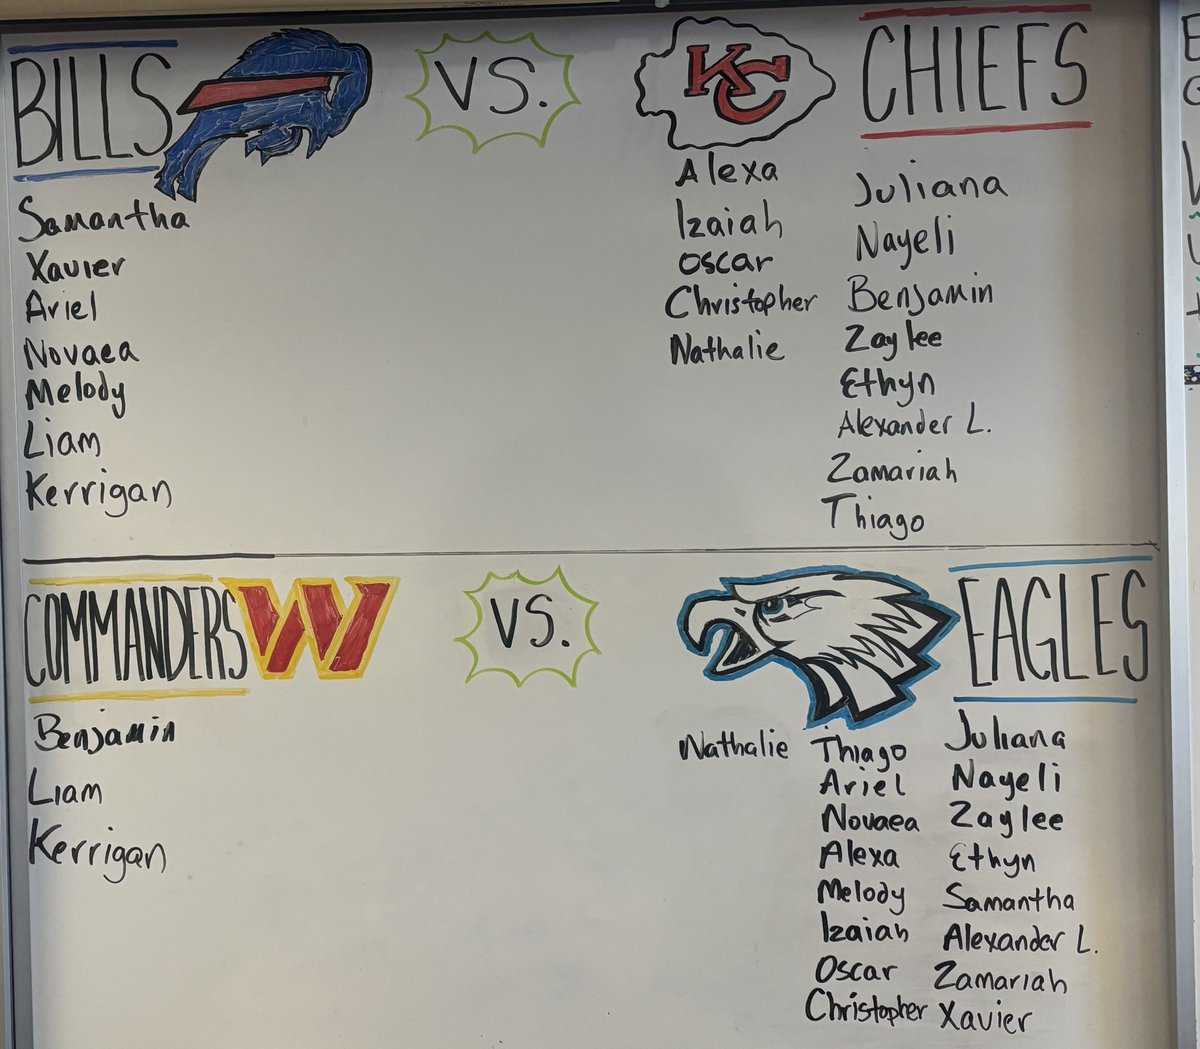 BILLS
VS.
KC
CHIEFS
Samantha
Xavier
Ariel
Novaea
Melody
Liam
Kerrigan
Alexa
Izaiah
Oscar
Christopher
Nathalie
Juliana
Nayeli
Benjamin
Zaylee
Ethyn
Alexander L.
Zamariah
Thiago
COMMANDERS
W
VS.
EAGLES
Benjamin
Liam
Kerrigan
Nathalie
Thiago
Ariel
Novaea
Alexa
Melody
Izaiah
Oscar
Christopher
Juliana
Nayeli
Zaylee
Ethyn
Samantha
Alexander L.
Zamariah
Xavier